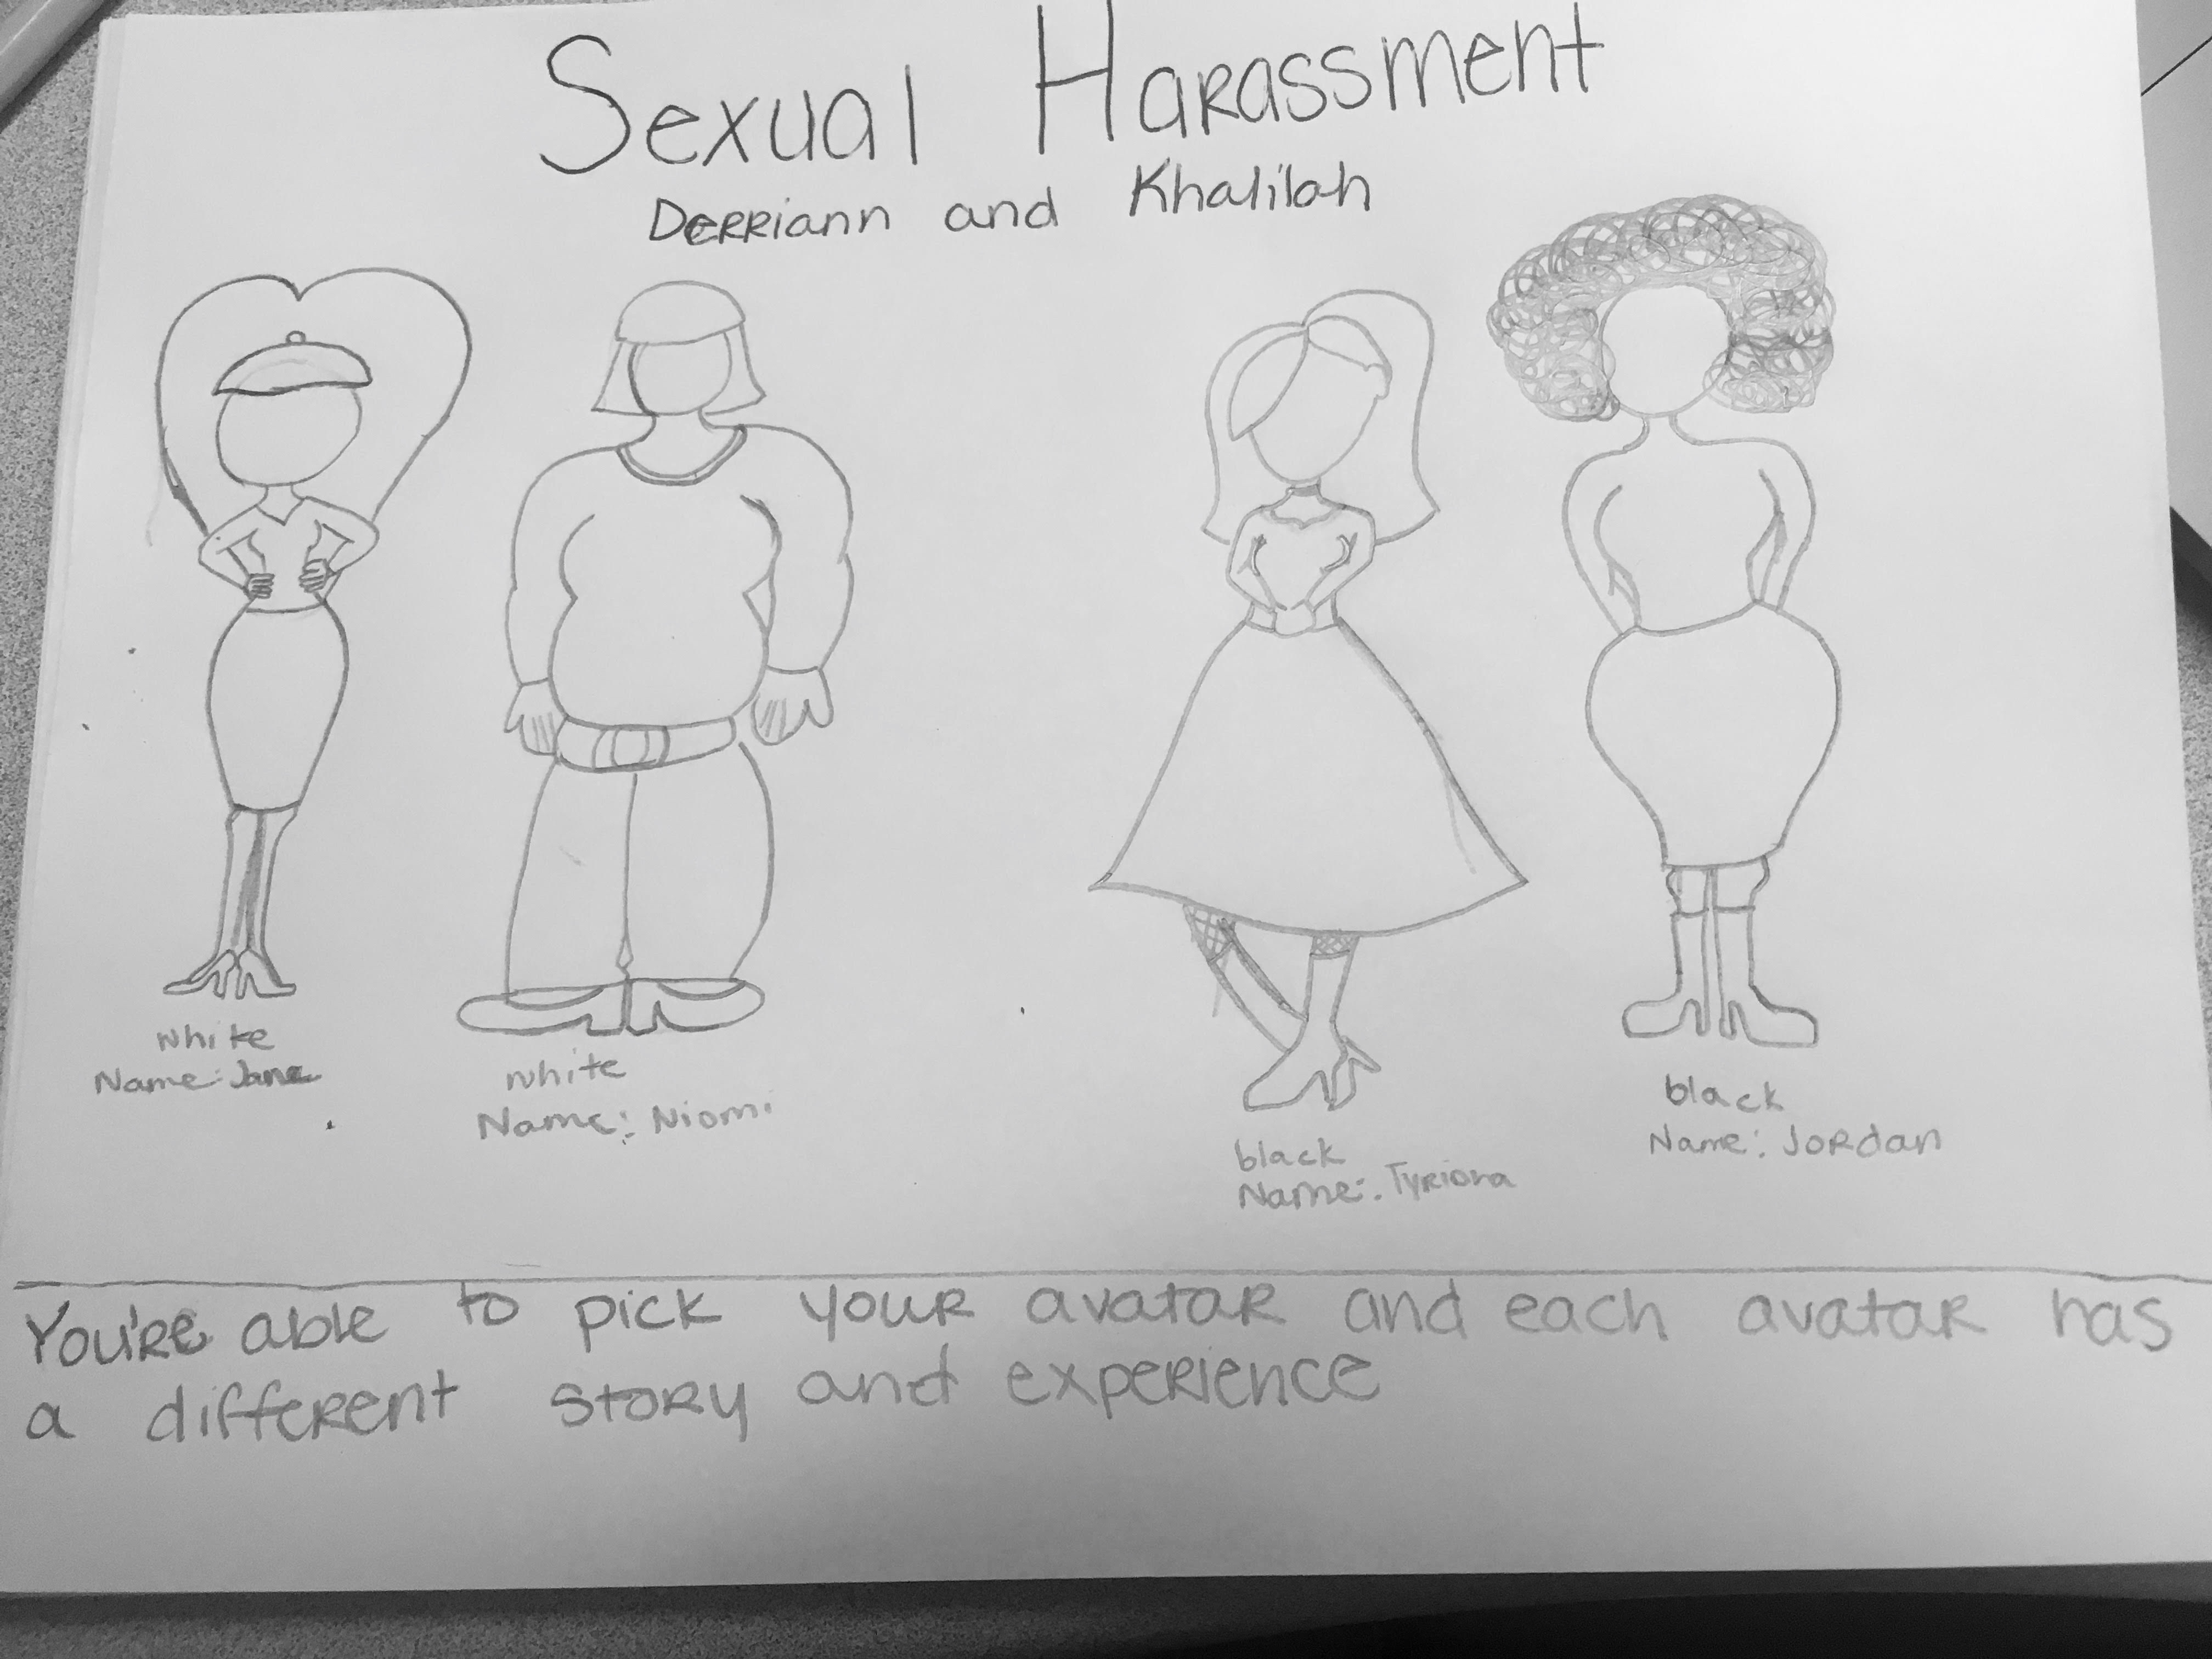 Sexual Harassment
Derriann and Khalilah
white
Name: Jane
white
Name: Niomi
black
Name: Tyriona
black
Name: Jordan
You're able to pick your avatar and each avatar has
a different story and experience